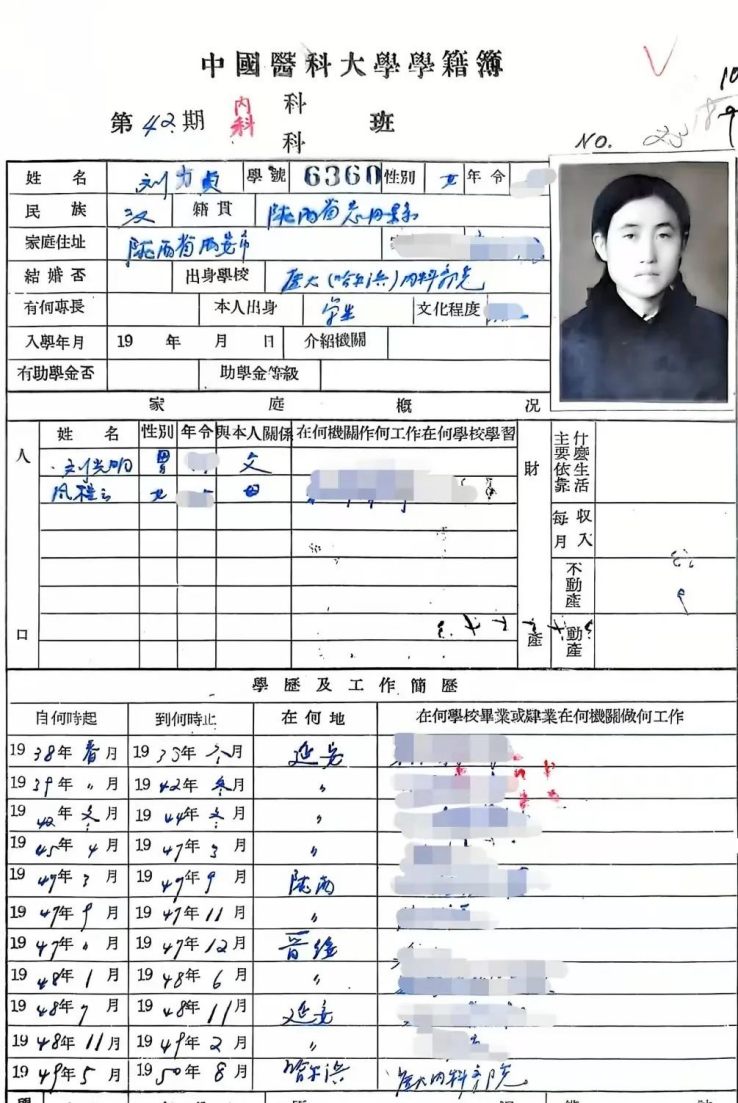 中國醫科大學學籍簿
第42期 内科 科 科 班
NO.
姓名 刘力贞 學號 6360 性別 女 年令
民族 汉 籍貫 陕西省志丹县
家庭住址 陕西省西安市
結婚否 出身學校 医大(哈尔滨)内科部院
有何專長 本人出身 学生 文化程度
入學年月 19 年 月 日 介紹機關
有助學金否 助學金等級
家庭概况
人口 姓名 性別 年令 與本人關係 在何機關作何工作在何學校學習 財產 主要依靠什麼生活
刘 男 父
女 母
每月收入
不動產
動產
學歷及工作簡歷
自何時起 到何時止 在何地 在何學校畢業或肄業在何機關做何工作
1938年春月 19 年 月 延安
1939年〃月 1942年冬月 〃
1942年冬月 1944年冬月 〃
1945年4月 1947年3月 〃
1947年3月 1947年9月 陕西
1947年9月 1947年11月 〃
1947年〃月 1947年12月 晋绥
1948年1月 1948年6月 〃
1948年7月 1948年11月 延安
1948年11月 1949年2月 〃
1949年5月 1950年8月 哈尔滨 医大内科部院